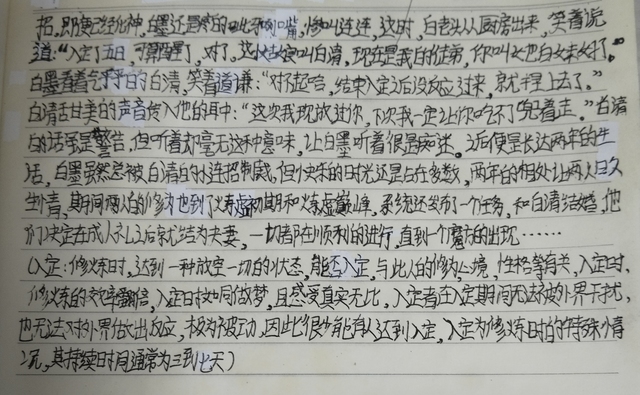 招,即使已经化神,白墨还是疼的呲牙咧嘴,惨叫连连,这时,白老头从厨房出来,笑着说
道:“入定了五日,可算醒了,对了,这姑娘叫白清,现在是我的徒弟,你叫她白女未好了。”
白墨看着气乎乎的白清,笑着道谦:“对不起哈,结束入定之后没反应过来,就上去了。”
白清甘美的声音传入他的耳中:“这次我现放过你,下次我一定让你吃不了兜着走。”白清
的话虽是警告,但听着却毫无这种意味,让白墨听着很是痴迷。之后便是长达两年的生
活,白墨虽然总被白清的小连招制裁,但快乐的时光还是占在多数,两年的相处让两人日久
生情,期间两人的修为也到了炼虚初期和炼虚巅峰,系统还发布了一个任务,和白清结婚,他
们决定在成人礼之后就结为夫妻,一切都在顺利的进行,直到一个魔方的出现……
(入定:修炼时,达到一种放空一切的状态,能否入定,与此人的修为,心境,性格等有关,入定时,
修炼的效率翻倍,入定日按如同做梦,且感受真实无比,入定者在入定期间无法被外界干扰,
也无法对外界做出反应,极为被动,因此很少能有人达到入定,入定为修炼时的特殊情
况,其持续时间通常为三到七天)